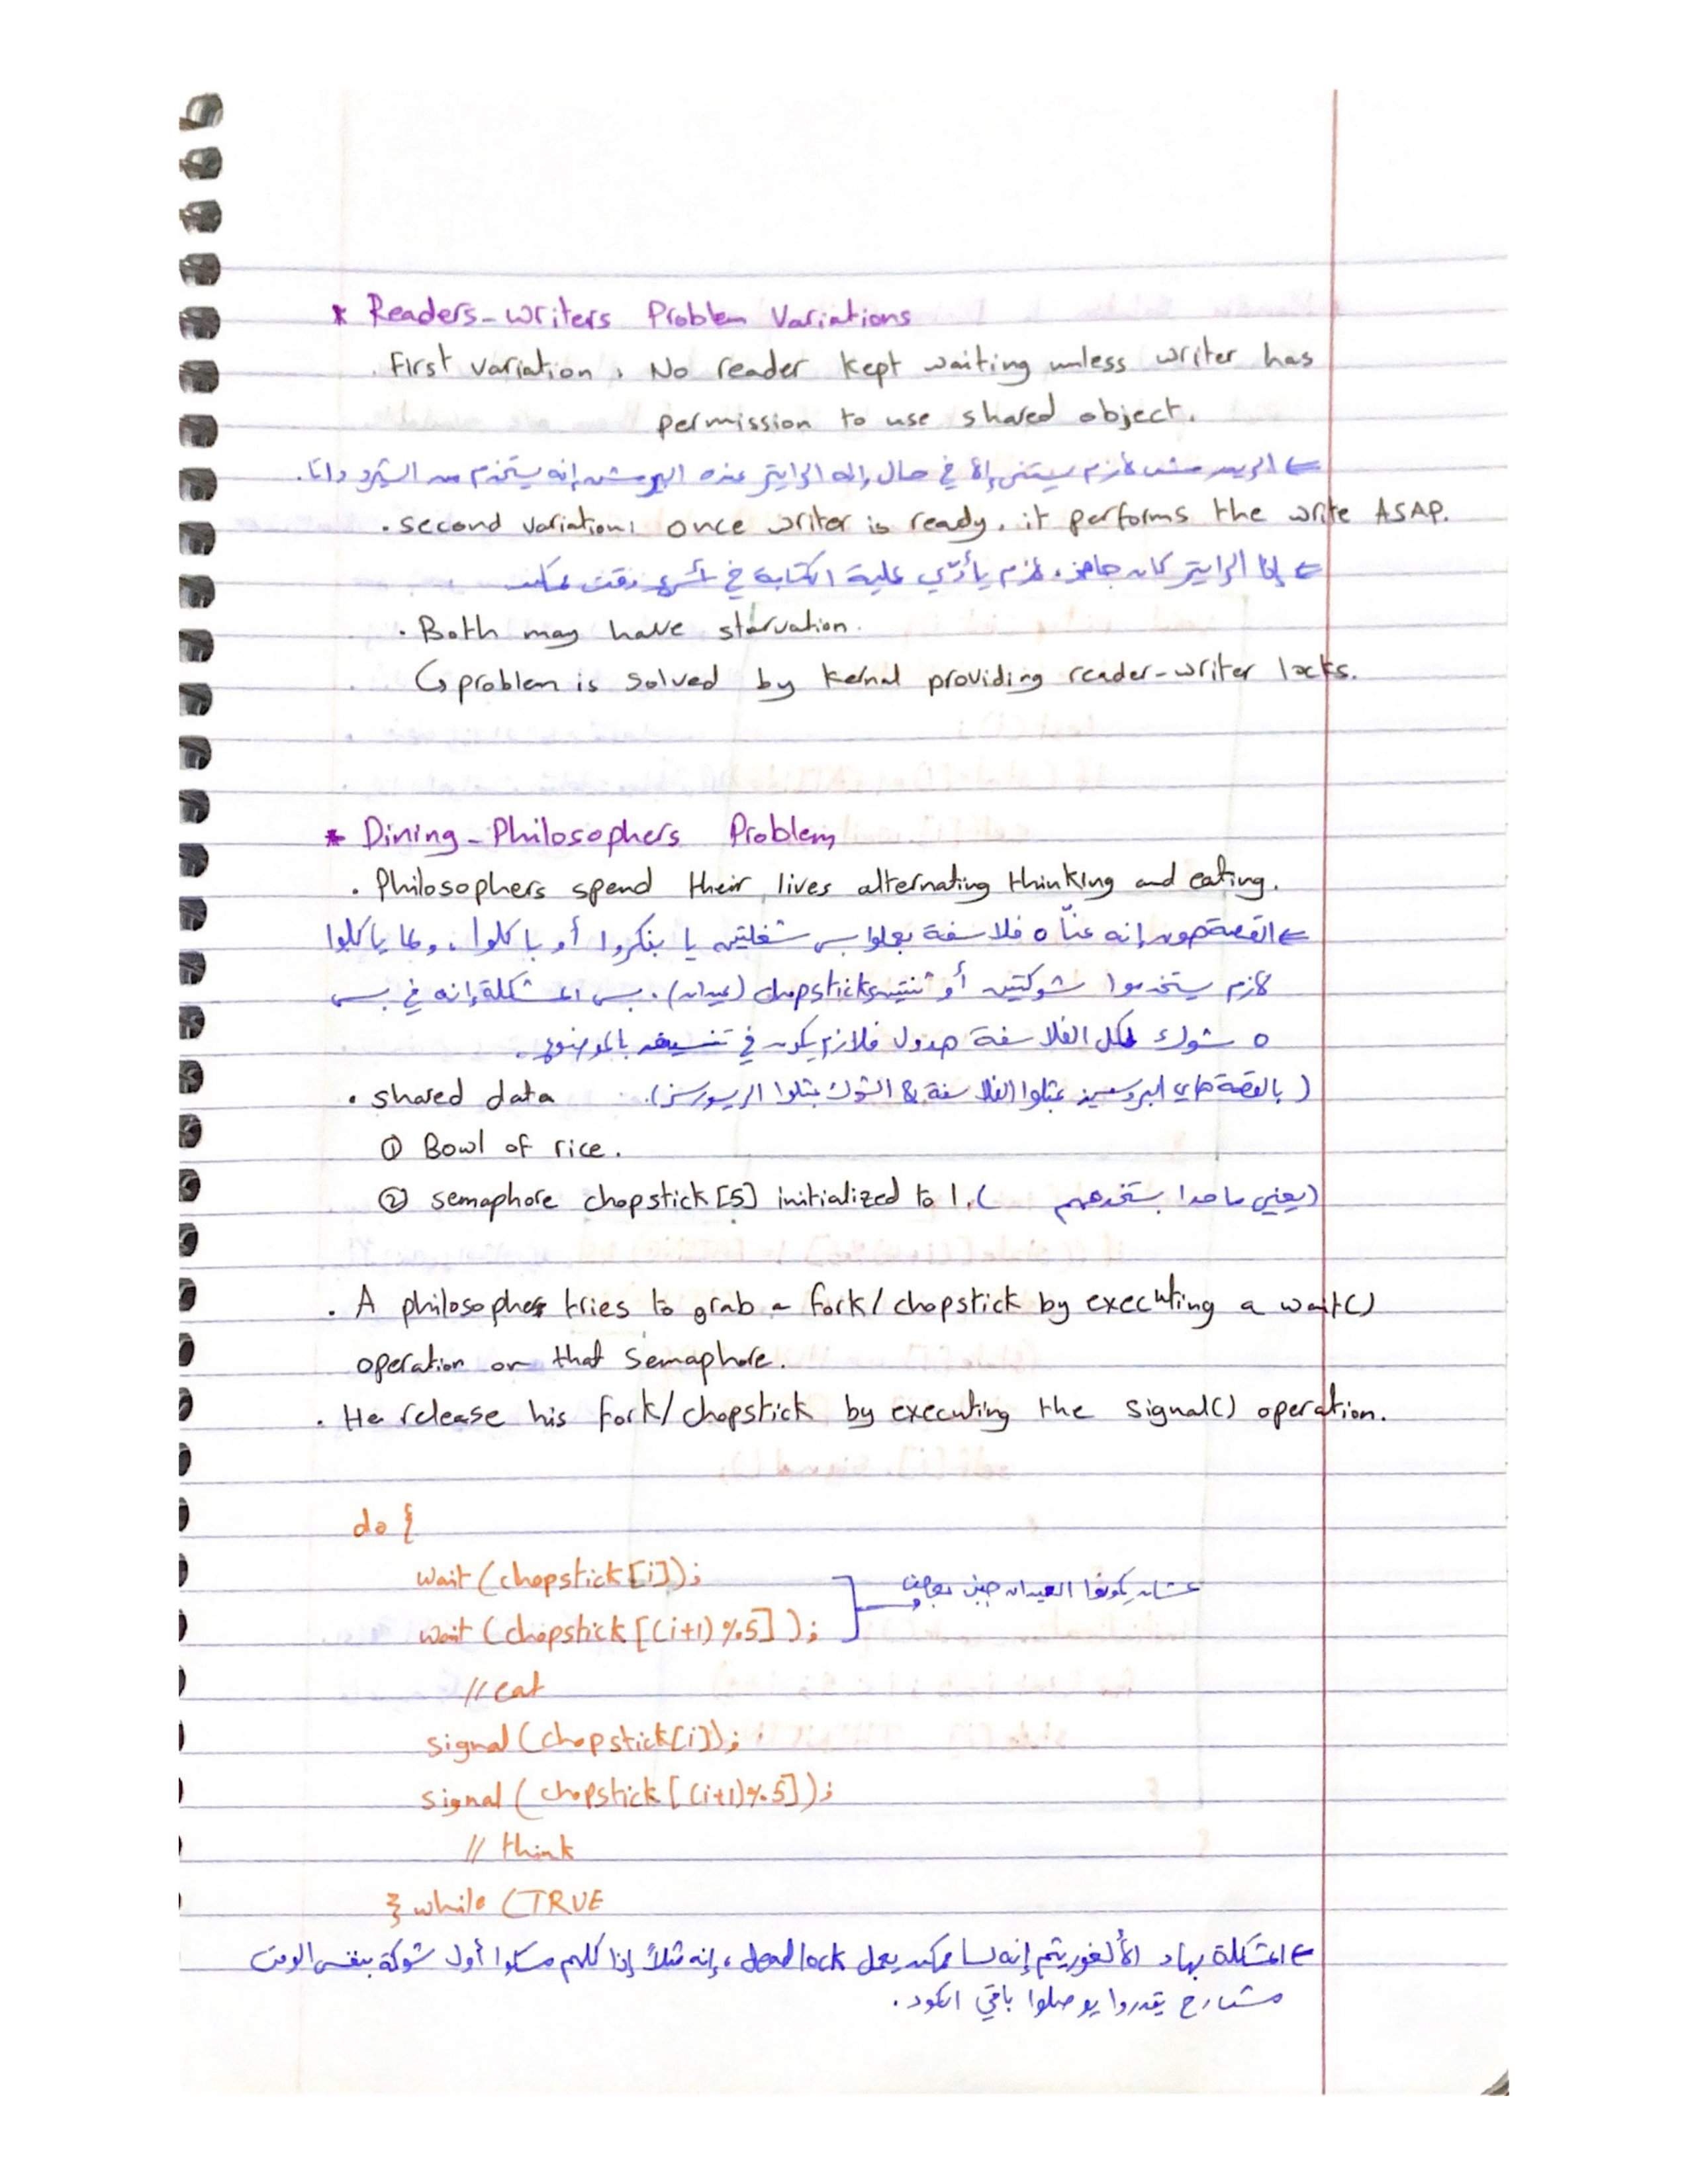 * Readers-writers Problem Variations
. First variation, No reader kept waiting unless writer has
permission to use shared object.
⇐ الريدر مش لازم يستنى إلا في حال إنه الرايتر عنده البرمشن إنه يستخدم الشيرد داتا.
. second variation: once writer is ready, it performs the write ASAP.
⇐ إذا الرايتر كان جاهز، لازم يأدّي عملية الكتابة في أسرع وقت ممكن
. Both may have starvation.
↳ problem is solved by kernal providing reader-writer locks.
* Dining-Philosophers Problem
. Philosophers spend their lives alternating thinking and eating.
⇐ القصة هون إنه عنّا ٥ فلاسفة بعملوا بس شغلتين يا بفكروا أو باكلوا، ولما ياكلوا
لازم يستخدموا شوكتين أو ثنتين chopsticks (عيدان). بس المشكلة إنه في بس
٥ شوك لكل الفلاسفة هدول فلازم يكون في تنسيق بالموضوع.
. shared data (بالقصة هاي البروسيسز بمثلوا الفلاسفة & الشوك بمثلوا الريسورسز).
① Bowl of rice.
② semaphore chopstick[5] initialized to 1. (يعني ما حدا بستخدمهم)
. A philosopher tries to grab a fork/chopstick by executing a wait()
operation on that semaphore.
. He release his fork/chopstick by executing the signal() operation.
do {
wait (chopstick[i]);
wait (chopstick[(i+1)%5]); عشان يكونوا العيدان جنب بعض
//eat
signal (chopstick[i]);
signal ( chopstick[(i+1)%5]);
// think
} while (TRUE
⇐ المشكلة بهاد الألغوريثم إنه لسا ممكن يعمل deadlock، إنه مثلاً إذا كلهم مسكوا أول شوكة بنفس الوقت
مش رح يقدروا يوصلوا باقي الكود.